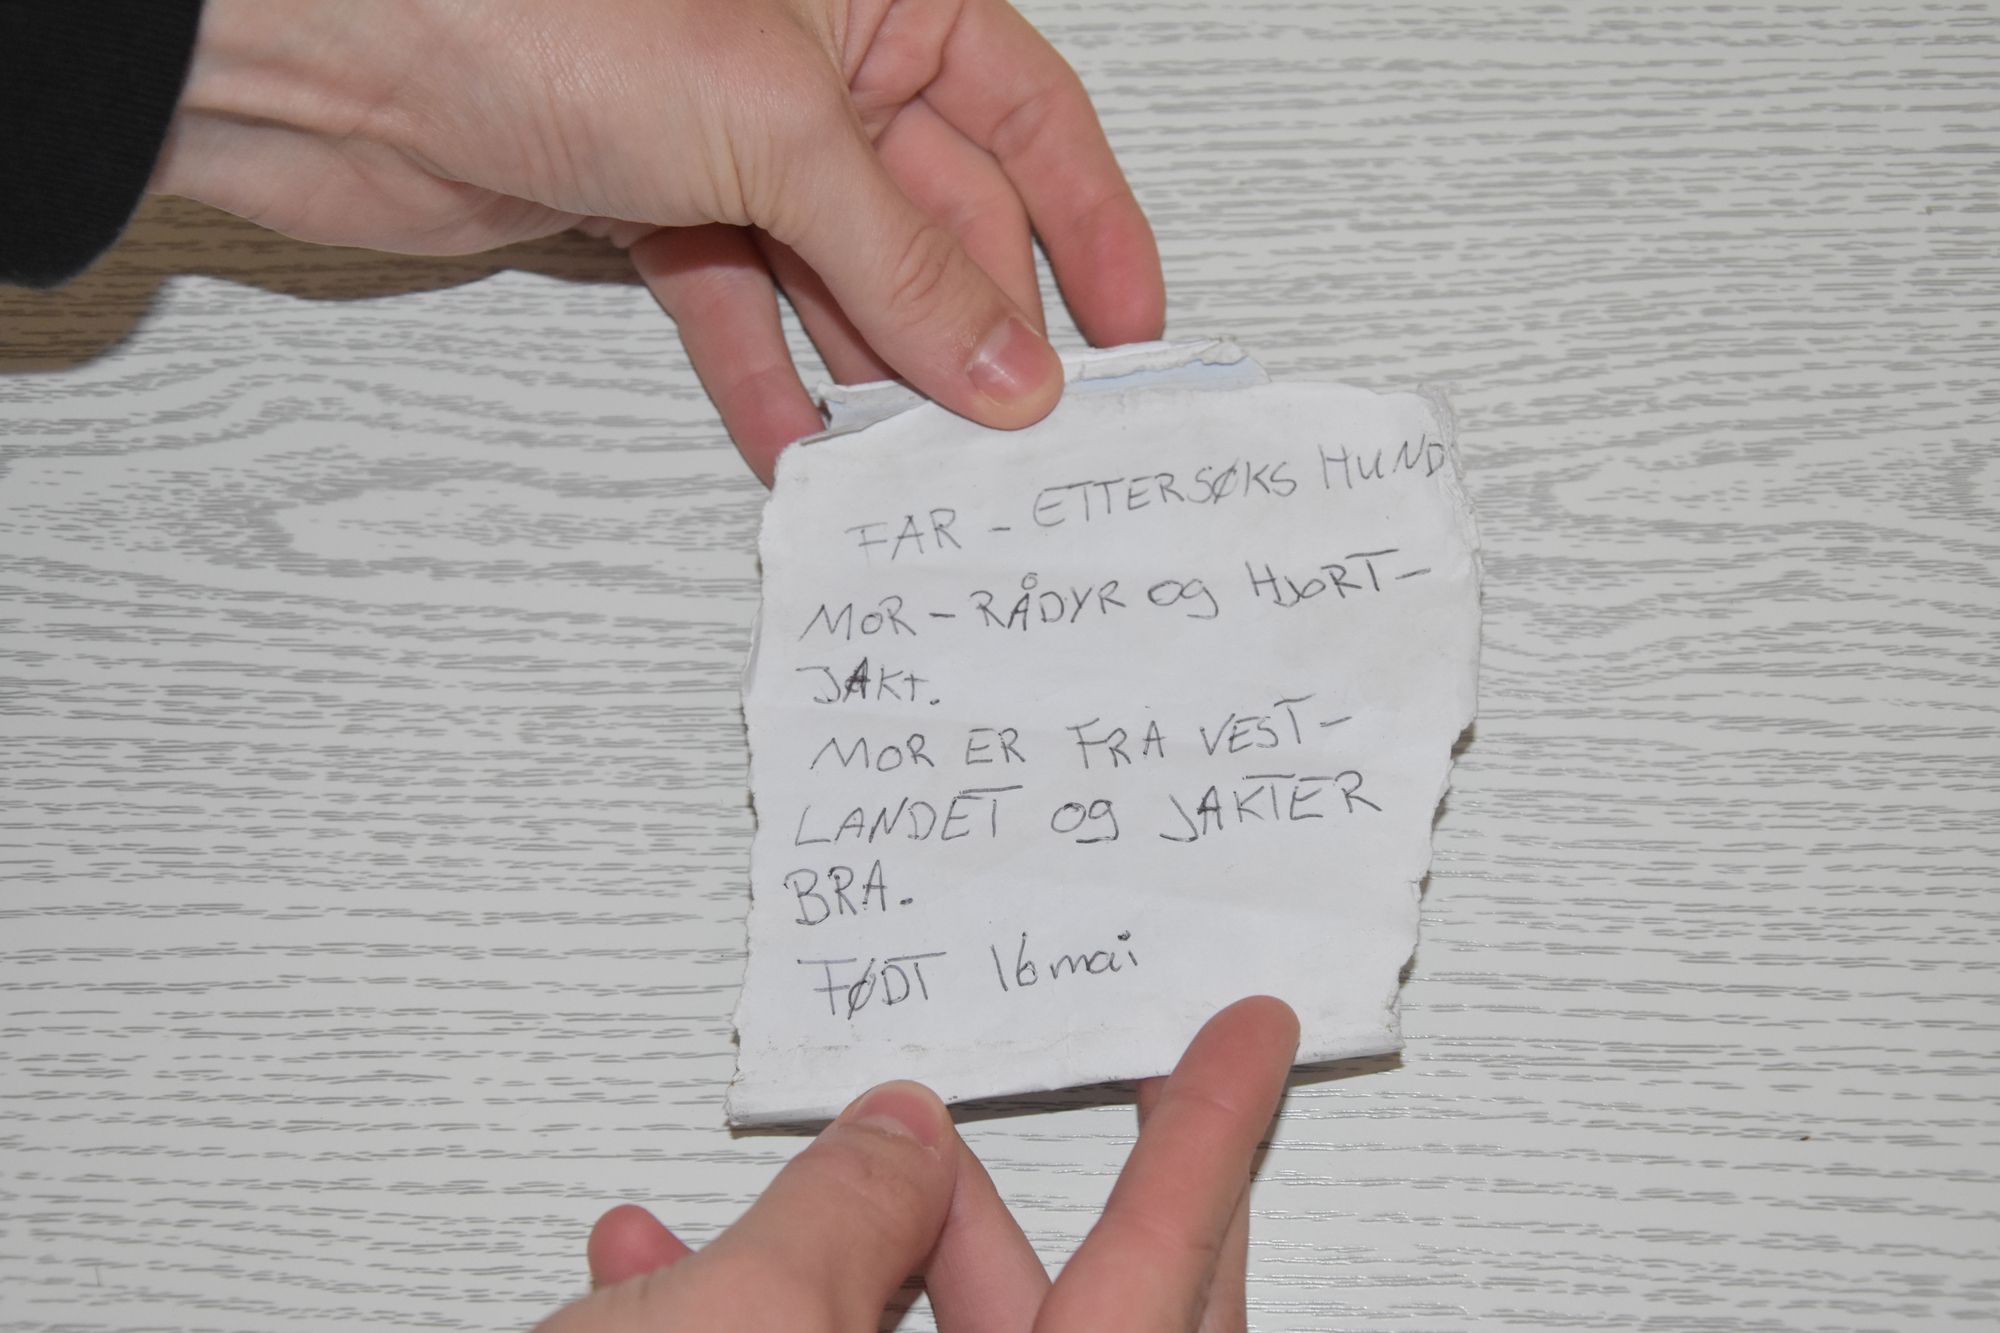 FAR - ETTERSØKS HUND
MOR - RÅDYR og HJORT-
JAKT.
MOR ER FRA VEST-
LANDET og JAKTER
BRA.
FØDT 16 mai